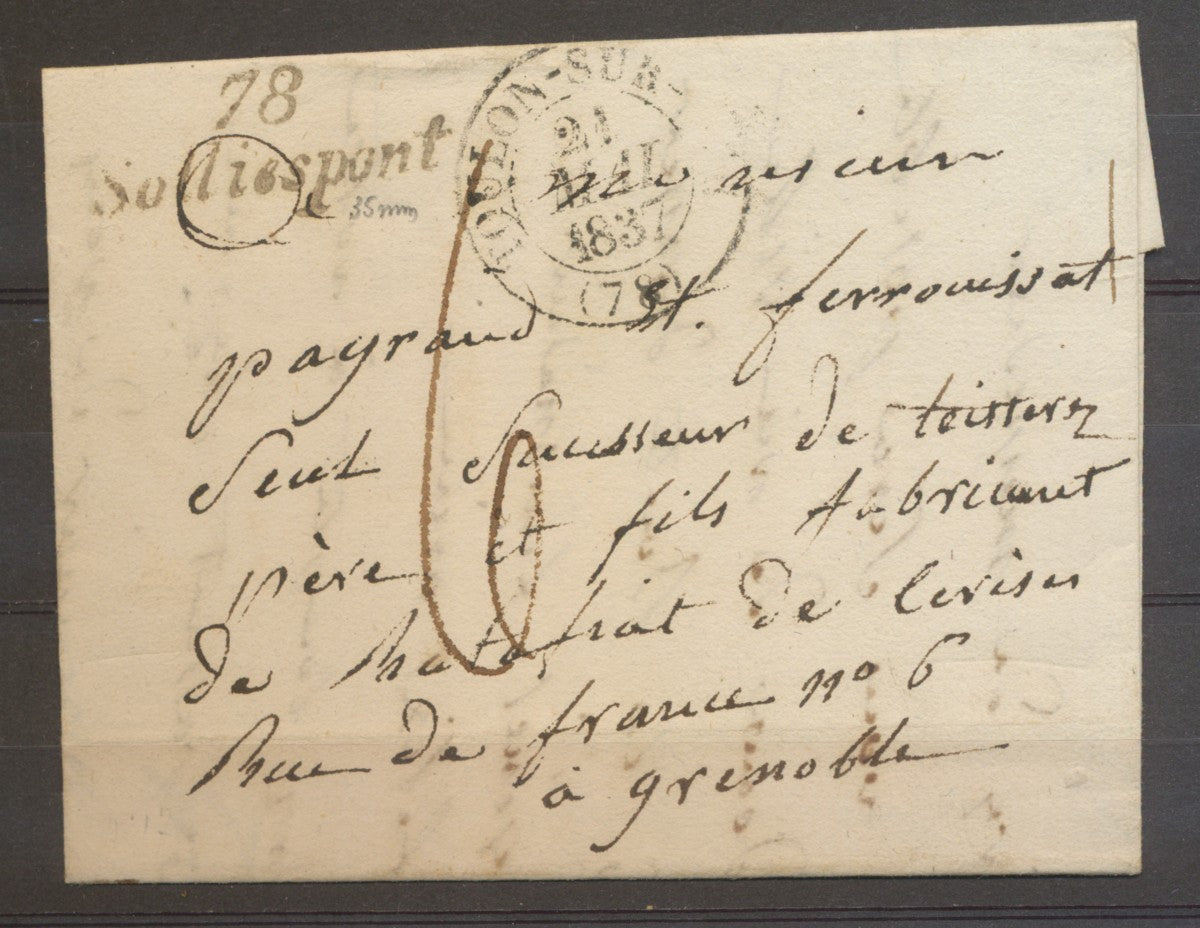 78
Solliespont
35mm
TOULON-SUR-
21
MAI
1837
(78)
A monsieur
pagraud St. ferrouissat
Seul Sucsseur de teisserez
père et fils fabricant
de Ratafiat de Cerises
Rue de france nº 6
à grenoble
6